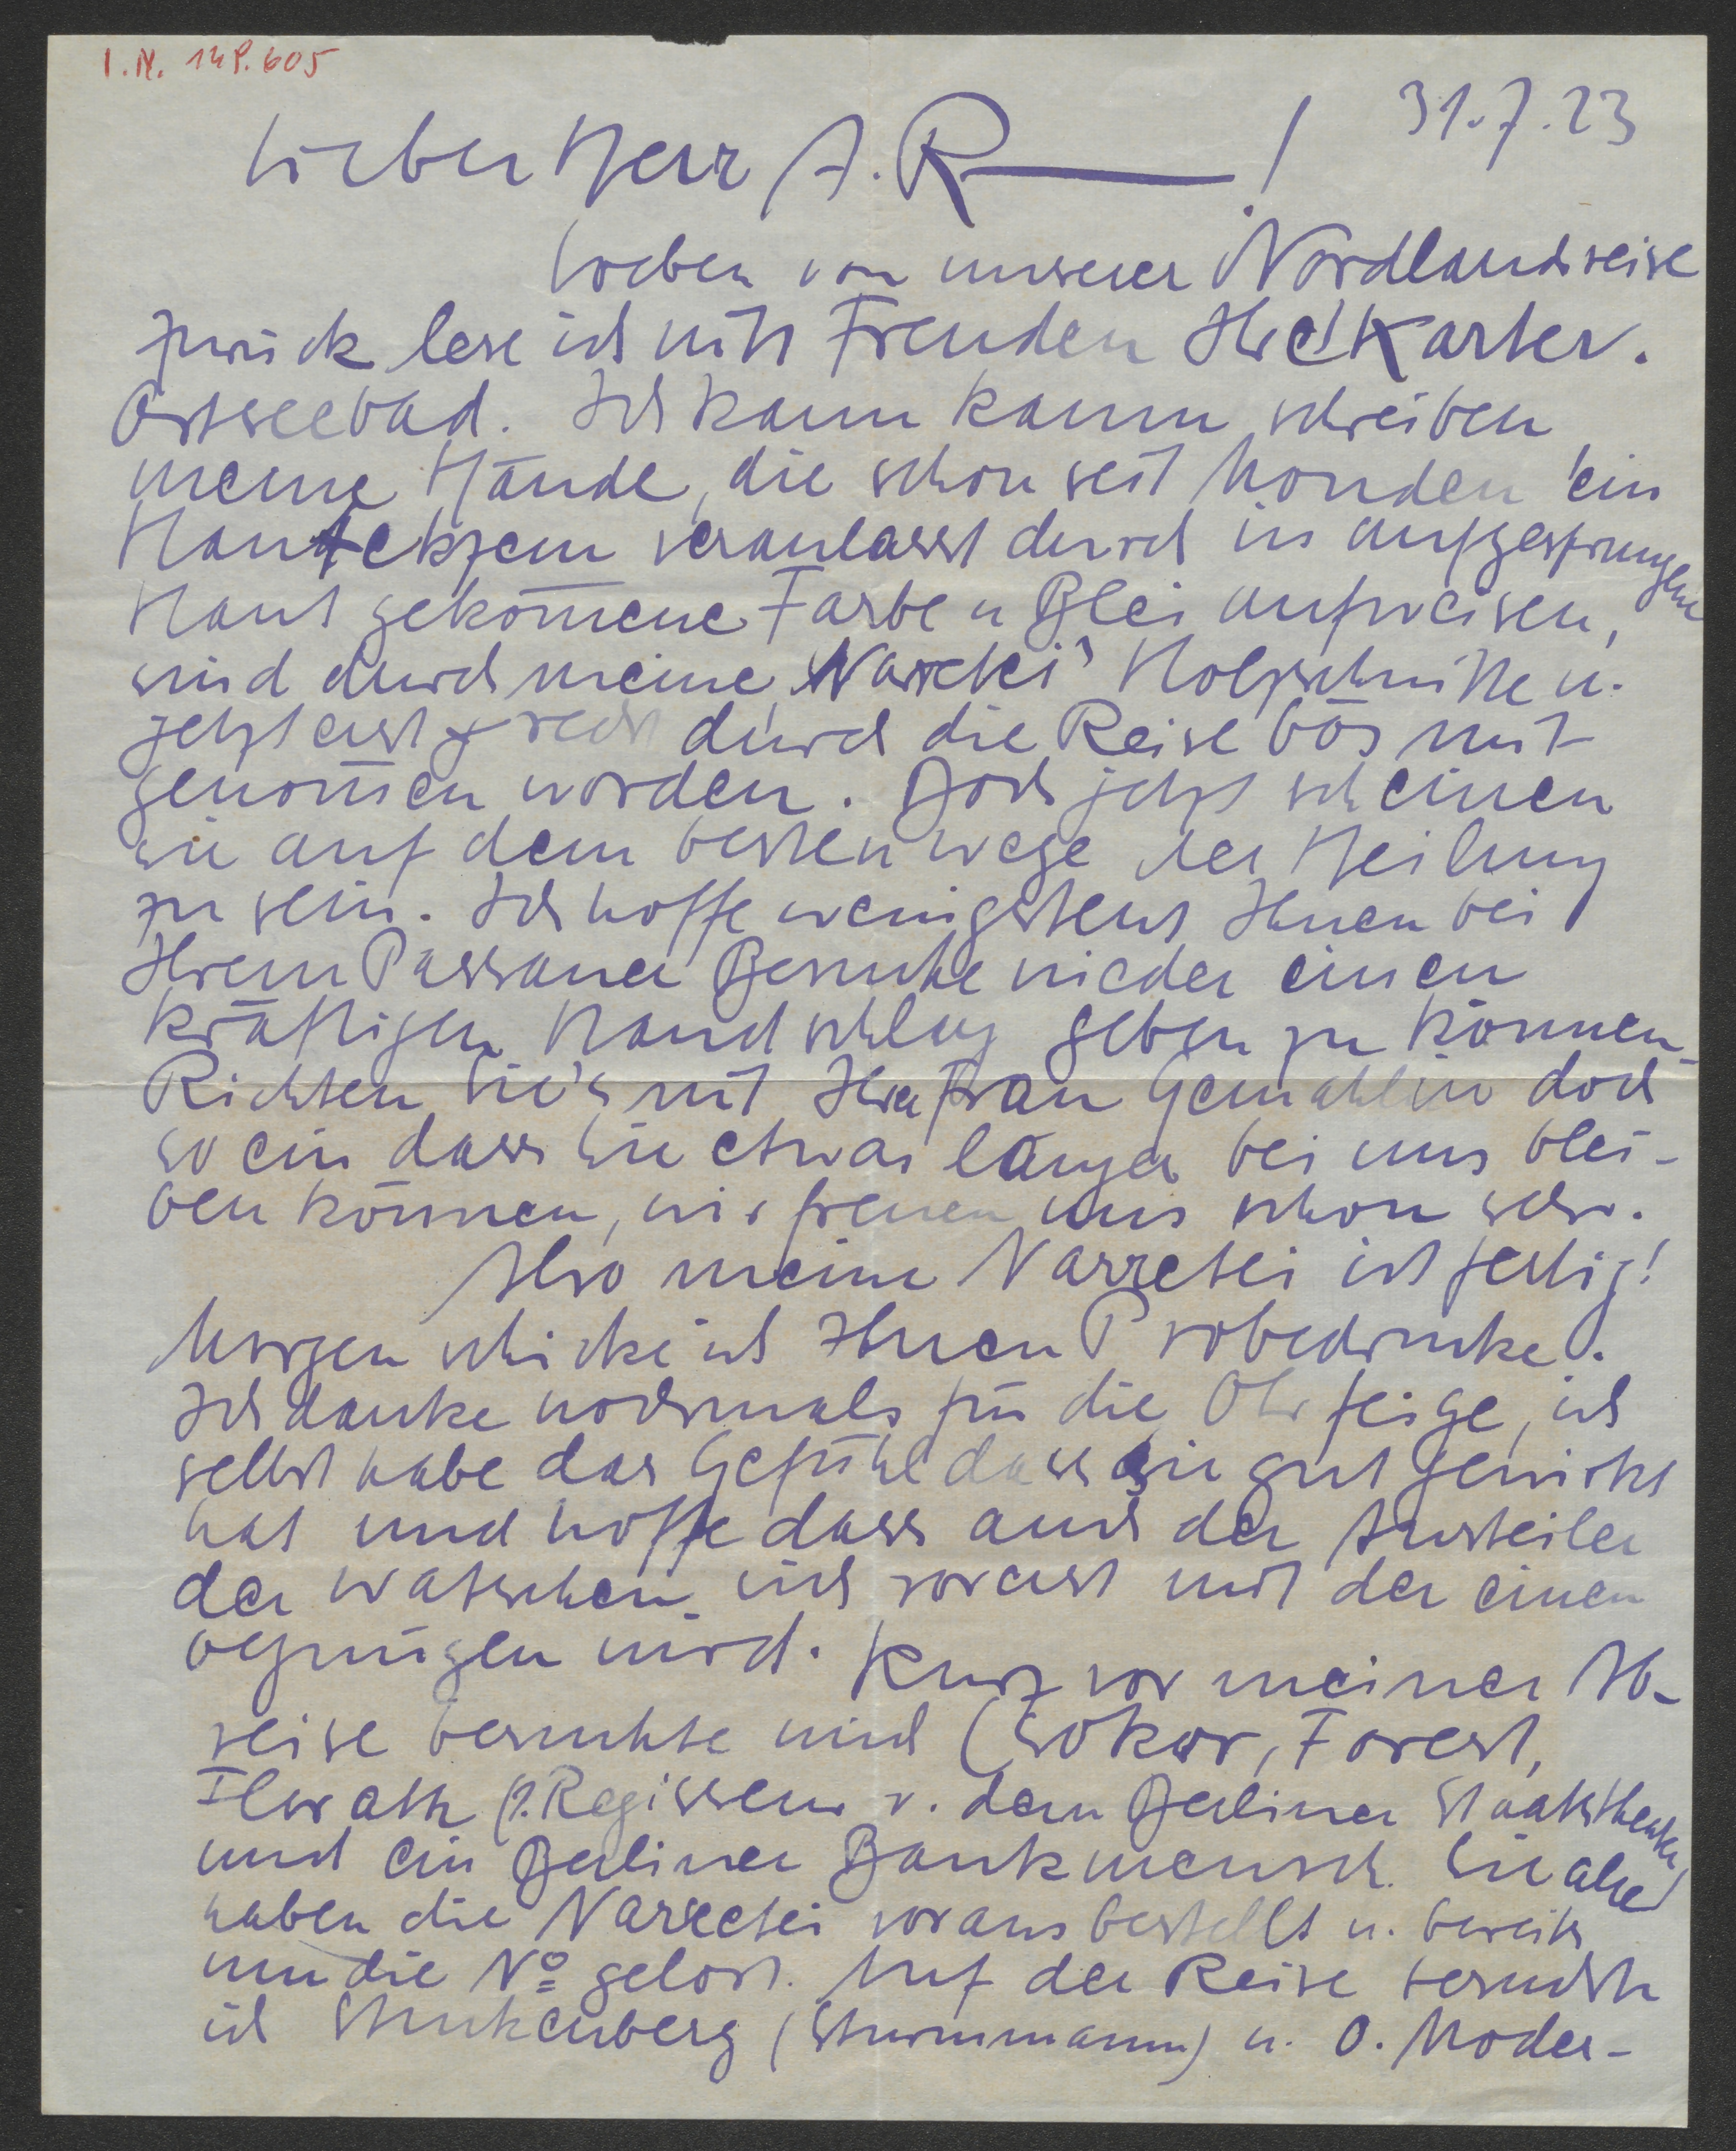 I.N. 148.605
31.7.23
Lieber Herr A. R———!
Soeben von unserer Nordlandreise
zurück lese ich mit Freuden Ihre Karte v.
Ostseebad. Ich kann kaum schreiben
meine Hände, die schon seit Monden ein
Hautekzem veranlasst durch in aufgesprungene
Haut gekom̅ene Farbe u Blei aufweisen,
sind durch meine Narretei Holzschnitte u.
jetzt erst recht durch die Reise bös mit
genom̅en worden. Doch jetzt scheinen
sie auf dem besten wege der Heilung
zu sein. Ich hoffe wenigstens Ihnen bei
Ihrem Passauer Besuche wieder einen
kräftigen Handschlag geben zu können.
Richten Sie's mit Ihrer Frau Gemahlin doch
so ein dass Sie etwas länger bei uns blei-
ben können, wir freuen uns schon sehr.
Also meine Narretei ist fertig!
Morgen schicke ich Ihnen Probedrucke.
Ich danke nochmals für die Ohrfeige, ich
selbst habe das Gefühl dass sie gut gewirkt
hat und hoffe dass auch der Austeiler
der Watschen sich vorerst mit der einen
begnügen wird. Kurz vor meiner Ab-
reise besuchte mich Csokor, Forest,
(Regisseur v. dem Berliner Staatstheater)
und ein Berliner Bankmensch. Sie alle
haben die Narretei voraus bestellt u. bereits
um die Nº gelost. Auf der Reise besuchte
ich Stuckenberg (Sturmmann) u. O. Moder-